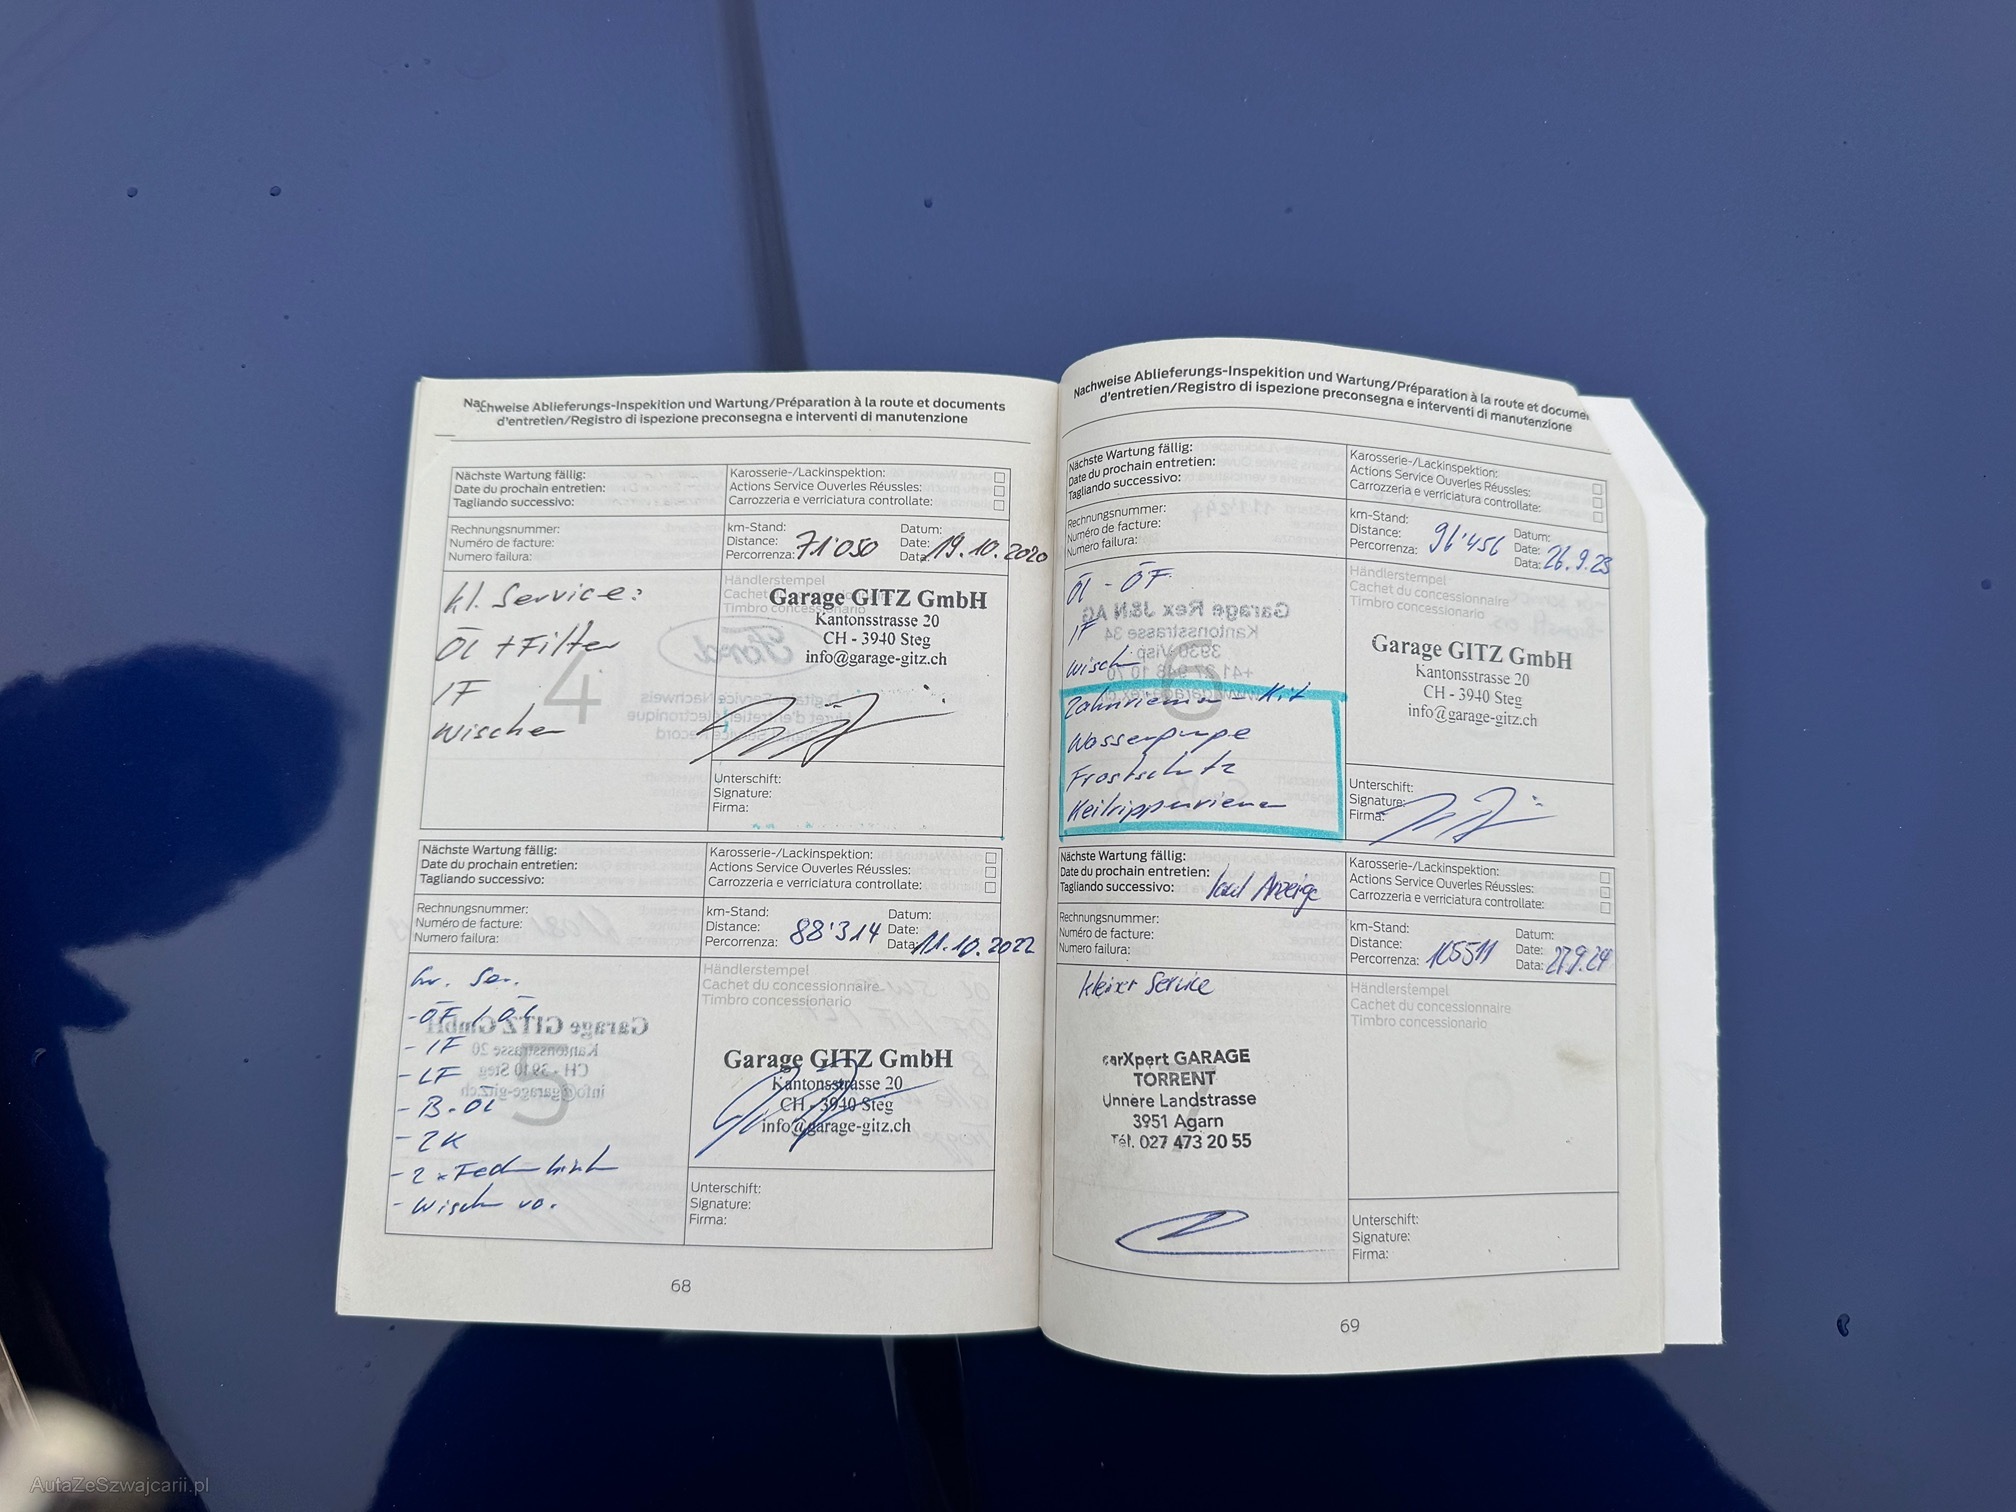 Nachweise Ablieferungs-Inspekition und Wartung/Préparation à la route et documents
d'entretien/Registro di ispezione preconsegna e interventi di manutenzione
Nächste Wartung fällig:
Date du prochain entretien:
Tagliando successivo:
Karosserie-/Lackinspektion:
Actions Service Ouverles Réussles:
Carrozzeria e verriciatura controllate:
Rechnungsnummer:
Numéro de facture:
Numero failura:
km-Stand:
Distance:
Percorrenza: 71'050
Datum:
Date:
Data: 19.10.2020
kl. Service:
Öl + Filter
IF
Wischer
4
Händlerstempel
Cachet du concessionnaire
Timbro concessionario
Garage GITZ GmbH
Kantonsstrasse 20
CH - 3940 Steg
info@garage-gitz.ch
Unterschift:
Signature:
Firma:
Nächste Wartung fällig:
Date du prochain entretien:
Tagliando successivo:
Karosserie-/Lackinspektion:
Actions Service Ouverles Réussles:
Carrozzeria e verriciatura controllate:
Rechnungsnummer:
Numéro de facture:
Numero failura:
km-Stand:
Distance:
Percorrenza: 88'314
Datum:
Date:
Data: 11.10.2022
Gr. Ser.
- ÖF / Öl
- IF
- LF
- B-Öl
- ZK
- 2 x
- Wisch vo.
5
Händlerstempel
Cachet du concessionnaire
Timbro concessionario
Garage GITZ GmbH
Kantonsstrasse 20
CH - 3940 Steg
info@garage-gitz.ch
Unterschift:
Signature:
Firma:
68
Nachweise Ablieferungs-Inspekition und Wartung/Préparation à la route et docume
d'entretien/Registro di ispezione preconsegna e interventi di manutenzione
Nächste Wartung fällig:
Date du prochain entretien:
Tagliando successivo:
Karosserie-/Lackinspektion:
Actions Service Ouverles Réussles:
Carrozzeria e verriciatura controllate:
Rechnungsnummer:
Numéro de facture:
Numero failura:
km-Stand:
Distance:
Percorrenza: 96'456
Datum:
Date:
Data: 26.9.23
Öl - ÖF
IF
Wisch
Zahnriemen - Kit
Wasserpumpe
Frostschutz
Keilrippenriemen
6
Händlerstempel
Cachet du concessionnaire
Timbro concessionario
Garage GITZ GmbH
Kantonsstrasse 20
CH - 3940 Steg
info@garage-gitz.ch
Unterschift:
Signature:
Firma:
Nächste Wartung fällig:
Date du prochain entretien:
Tagliando successivo: laut Anzeige
Karosserie-/Lackinspektion:
Actions Service Ouverles Réussles:
Carrozzeria e verriciatura controllate:
Rechnungsnummer:
Numéro de facture:
Numero failura:
km-Stand:
Distance:
Percorrenza: 105511
Datum:
Date:
Data: 27.9.24
kleiner Service
7
carXpert GARAGE
TORRENT
Unnere Landstrasse
3951 Agarn
Tél. 027 473 20 55
Händlerstempel
Cachet du concessionnaire
Timbro concessionario
Unterschift:
Signature:
Firma:
69
AutaZeSzwajcarii.pl